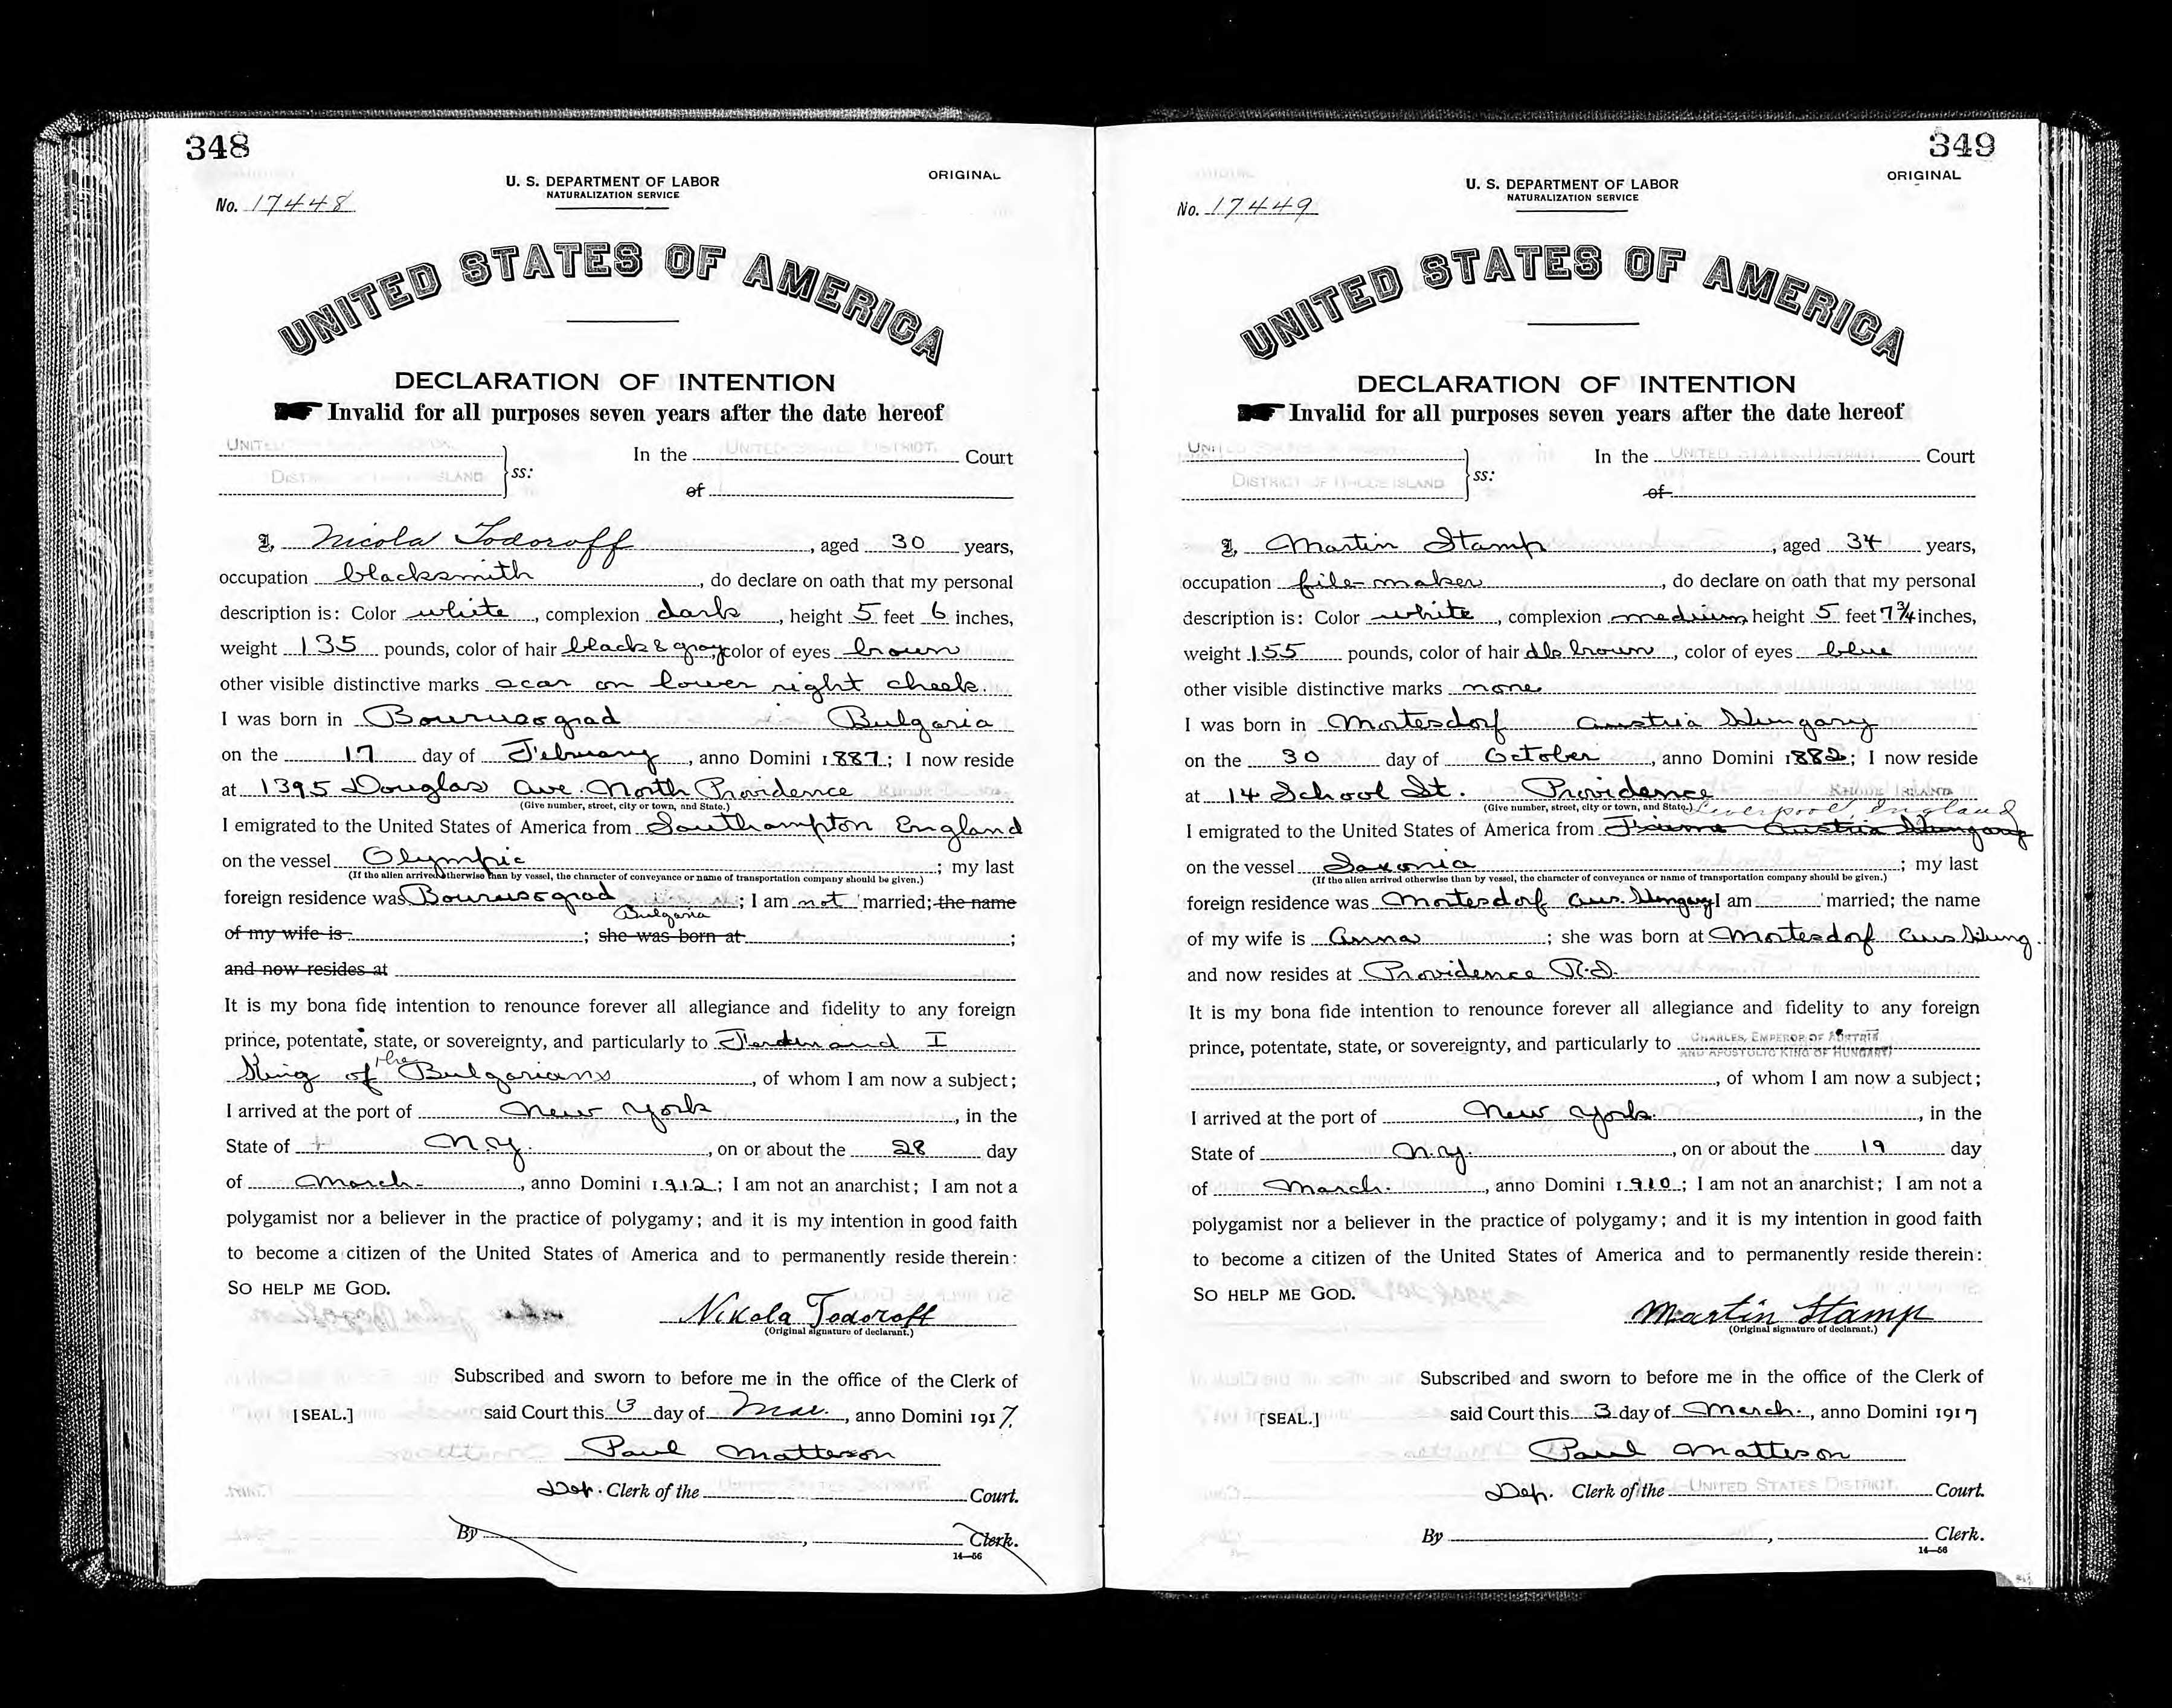 348
ORIGINAL
U. S. DEPARTMENT OF LABOR
NATURALIZATION SERVICE
No. 17448
UNITED STATES OF AMERICA
DECLARATION OF INTENTION
Invalid for all purposes seven years after the date hereof
In the UNITED STATES DISTRICT Court
DISTRICT OF RHODE ISLAND ss:
of
I, Nicola Todoroff, aged 30 years,
occupation blacksmith, do declare on oath that my personal
description is: Color white, complexion dark, height 5 feet 6 inches,
weight 135 pounds, color of hair black & gray, color of eyes brown
other visible distinctive marks scar on lower right cheek.
I was born in Bulgaria
on the 17 day of February, anno Domini 1887; I now reside
at 1395 Douglas Ave. North Providence
(Give number, street, city or town, and State.)
I emigrated to the United States of America from Southampton England
on the vessel Olympic; my last
(If the alien arrived otherwise than by vessel, the character of conveyance or name of transportation company should be given.)
foreign residence was Bulgaria; I am not married; the name
of my wife is; she was born at;
and now resides at
It is my bona fide intention to renounce forever all allegiance and fidelity to any foreign
prince, potentate, state, or sovereignty, and particularly to Ferdinand I
King of the Bulgarians, of whom I am now a subject;
I arrived at the port of New York, in the
State of N.Y., on or about the 28 day
of March, anno Domini 1912; I am not an anarchist; I am not a
polygamist nor a believer in the practice of polygamy; and it is my intention in good faith
to become a citizen of the United States of America and to permanently reside therein:
SO HELP ME GOD.
Nikola Todoroff
(Original signature of declarant.)
Subscribed and sworn to before me in the office of the Clerk of
[SEAL.] said Court this 3 day of Mar., anno Domini 1917.
Paul Matteson
Dep. Clerk of the Court.
By , Clerk.
14—56
349
ORIGINAL
U. S. DEPARTMENT OF LABOR
NATURALIZATION SERVICE
No. 17449
UNITED STATES OF AMERICA
DECLARATION OF INTENTION
Invalid for all purposes seven years after the date hereof
In the UNITED STATES DISTRICT Court
DISTRICT OF RHODE ISLAND ss:
of
I, Martin Stamp, aged 34 years,
occupation file-maker, do declare on oath that my personal
description is: Color white, complexion medium, height 5 feet 7 3/4 inches,
weight 155 pounds, color of hair dk brown, color of eyes blue
other visible distinctive marks none
I was born in Mortesdorf Austria Hungary
on the 30 day of October, anno Domini 1882; I now reside
at 14 School St. Providence RHODE ISLAND
(Give number, street, city or town, and State.) Liverpool, England
I emigrated to the United States of America from Fiume Austria Hungary
on the vessel Saxonia; my last
(If the alien arrived otherwise than by vessel, the character of conveyance or name of transportation company should be given.)
foreign residence was Mortesdorf Aus. Hungary I am married; the name
of my wife is Anna; she was born at Mortesdorf Aus Hung.
and now resides at Providence R.I.
It is my bona fide intention to renounce forever all allegiance and fidelity to any foreign
prince, potentate, state, or sovereignty, and particularly to CHARLES, EMPEROR OF AUSTRIA
AND APOSTOLIC KING OF HUNGARY
, of whom I am now a subject;
I arrived at the port of New York, in the
State of N.Y., on or about the 19 day
of March, anno Domini 1910; I am not an anarchist; I am not a
polygamist nor a believer in the practice of polygamy; and it is my intention in good faith
to become a citizen of the United States of America and to permanently reside therein:
SO HELP ME GOD.
Martin Stamp
(Original signature of declarant.)
Subscribed and sworn to before me in the office of the Clerk of
[SEAL.] said Court this 3 day of March., anno Domini 1917
Paul Matteson
Dep. Clerk of the UNITED STATES DISTRICT Court.
By , Clerk.
14—56